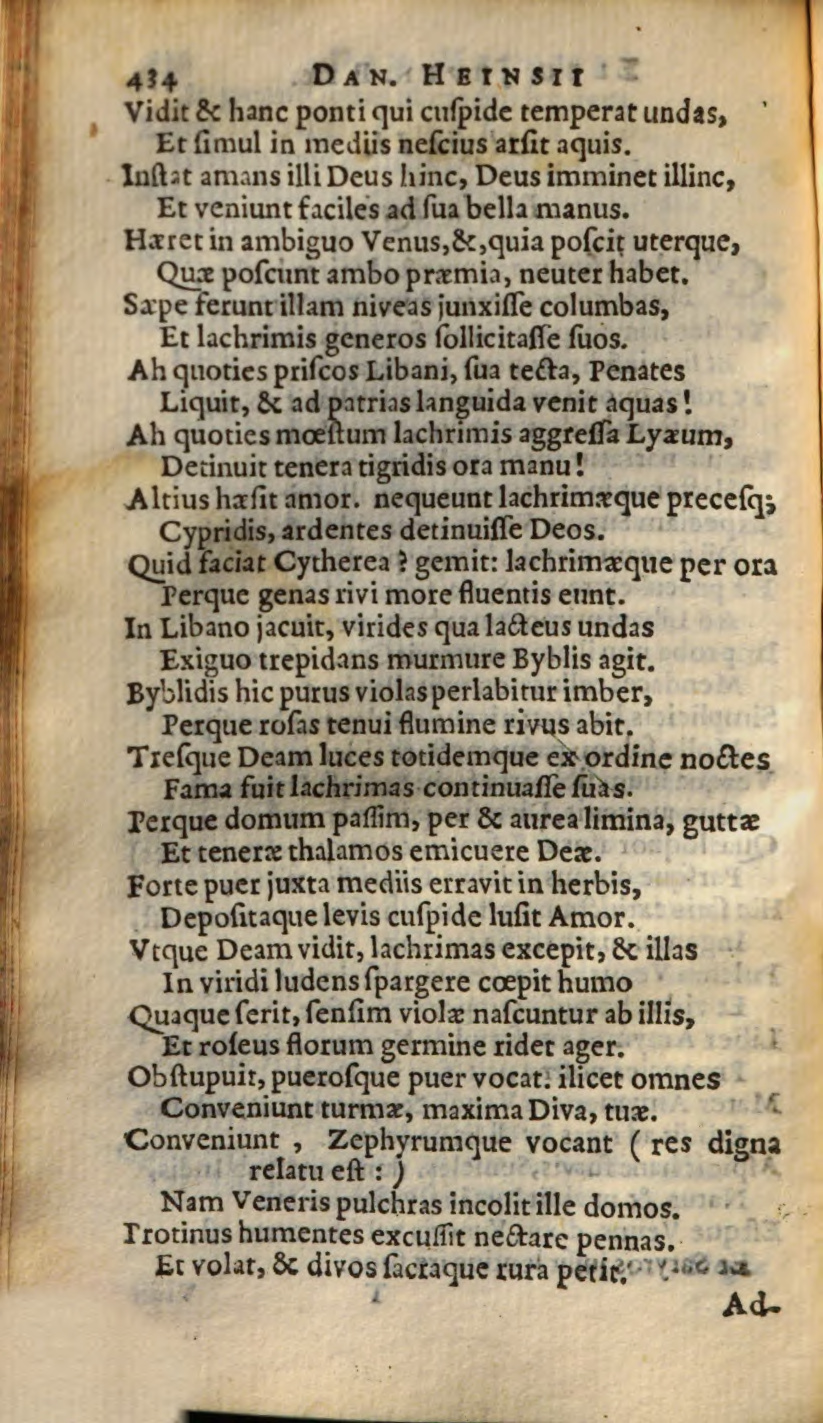 434 DAN. HEINSII
Vidit & hanc ponti qui cuſpide temperat undas,
Et ſimul in mediis neſcius arſit aquis.
Inſtat amans illi Deus hinc, Deus imminet illinc,
Et veniunt faciles ad ſua bella manus.
Hæret in ambiguo Venus,&,quia poſcit uterque,
Quæ poſcunt ambo præmia, neuter habet.
Sæpe ferunt illam niveas junxiſſe columbas,
Et lachrimis generos ſollicitaſſe ſuos.
Ah quoties priſcos Libani, ſua tecta, Penates
Liquit, & ad patrias languida venit aquas!
Ah quoties mœſtum lachrimis aggreſſa Lyæum,
Detinuit tenera tigridis ora manu!
Altius hæſit amor. nequeunt lachrimæque preceſq;
Cypridis, ardentes detinuiſſe Deos.
Quid faciat Cytherea? gemit: lachrimæque per ora
Perque genas rivi more fluentis eunt.
In Libano jacuit, virides qua lacteus undas
Exiguo trepidans murmure Byblis agit.
Byblidis hic purus violas perlabitur imber,
Perque roſas tenui flumine rivus abit.
Treſque Deam luces totidemque ex ordine noctes
Fama fuit lachrimas continuaſſe ſuas.
Perque domum paſſim, per & aurea limina, guttæ
Et teneræ thalamos emicuere Deæ.
Forte puer juxta mediis erravit in herbis,
Depoſitaque levis cuſpide luſit Amor.
Vtque Deam vidit, lachrimas excepit, & illas
In viridi ludens ſpargere cœpit humo
Quaque ferit, ſenſim violæ naſcuntur ab illis,
Et roſeus florum germine ridet ager.
Obſtupuit, pueroſque puer vocat: ilicet omnes
Conveniunt turmæ, maxima Diva, tuæ.
Conveniunt , Zephyrumque vocant ( res digna
relatu eſt : )
Nam Veneris pulchras incolit ille domos.
Protinus humentes excuſſit nectare pennas.
Et volat, & divos ſacraque rura petit.
Ad-